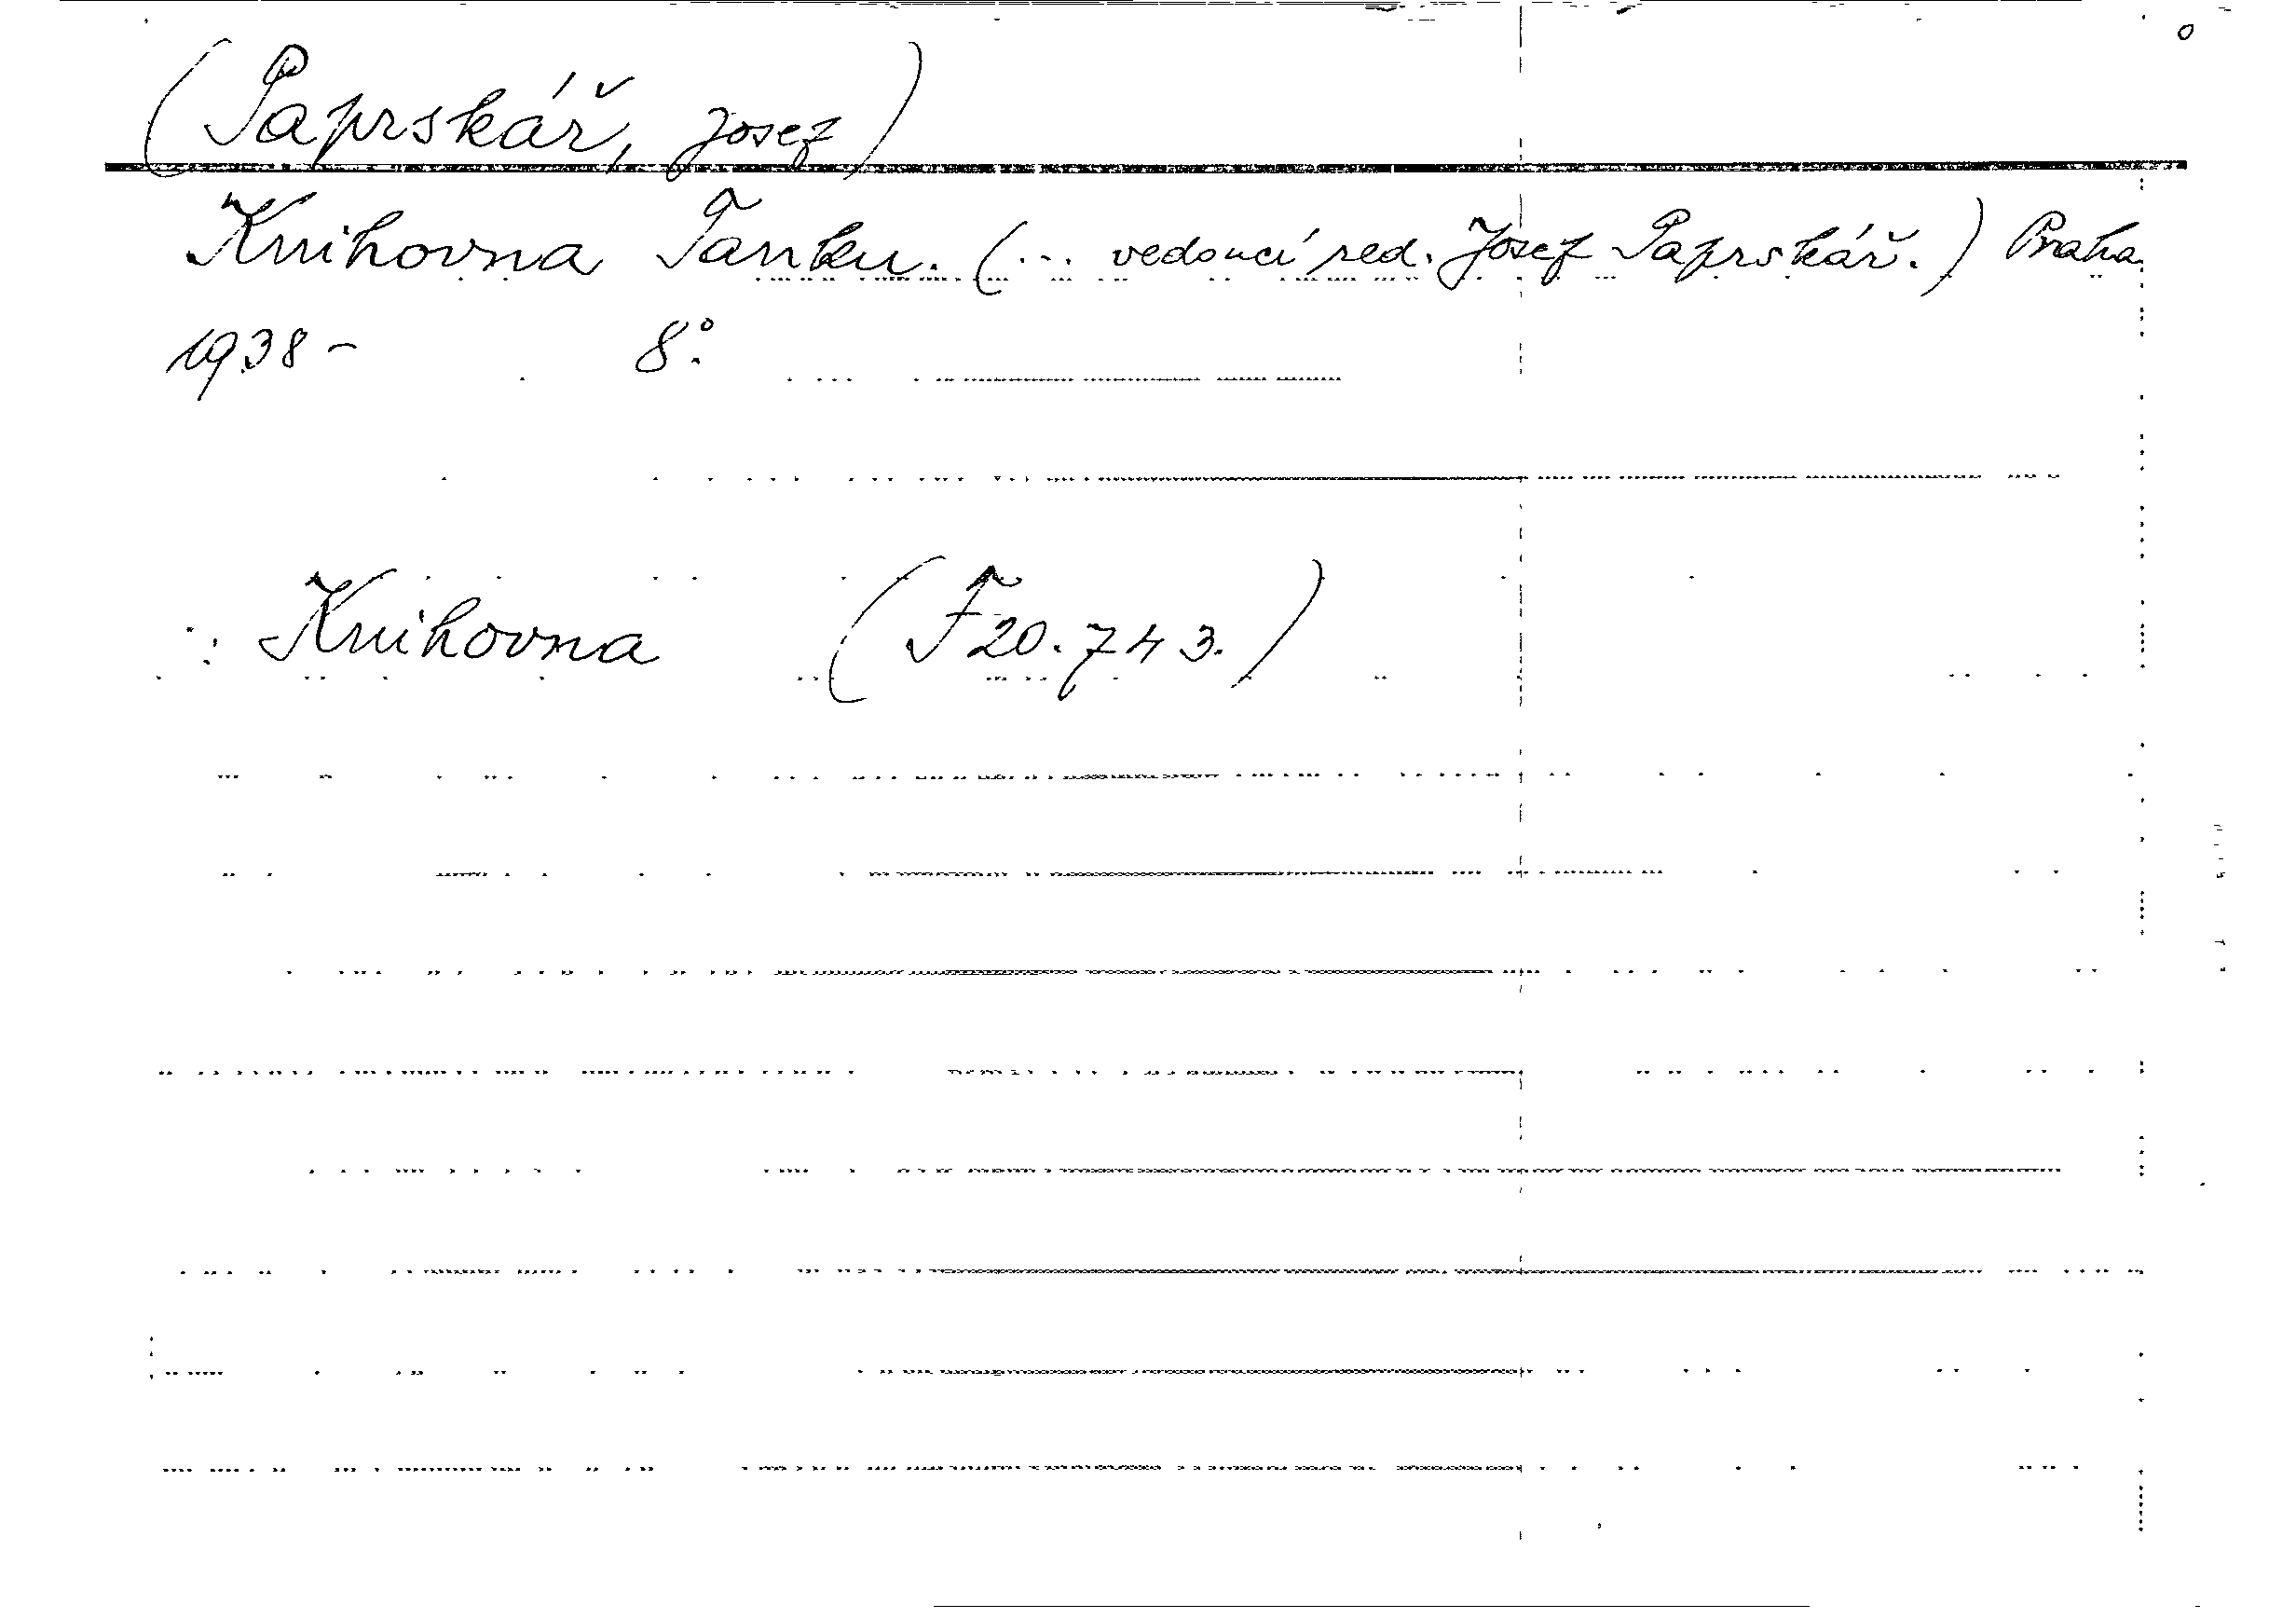 (Paprskář, Josef)
Knihovna Tanku. (... vedoucí red. Josef Paprskář.) Praha
1938 - 8°.
Knihovna (F 20.743.)